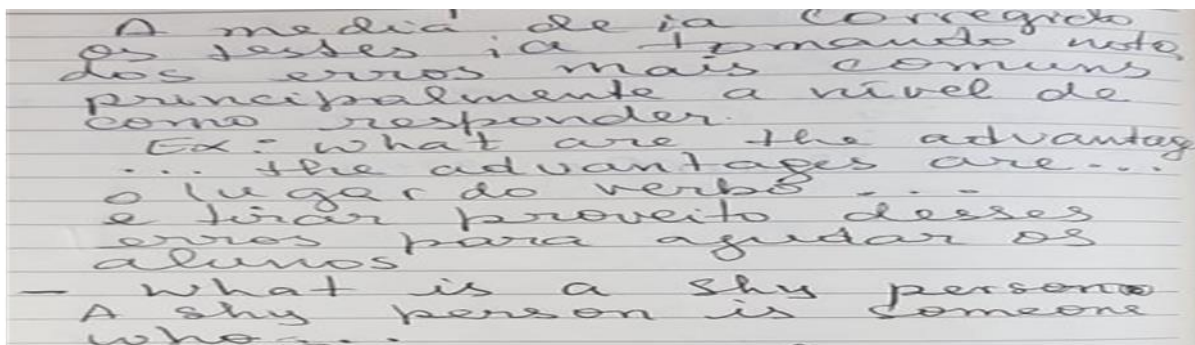 A media de ia corregido
os testes ia tomando nota
dos erros mais comuns
principalmente a nível de
como responder.
Ex: what are the advantag
... the advantages are...
o lugar do verbo ...
e tirar proveito desses
erros para agudar os
alunos
- what is a shy person
A shy person is someone
who...